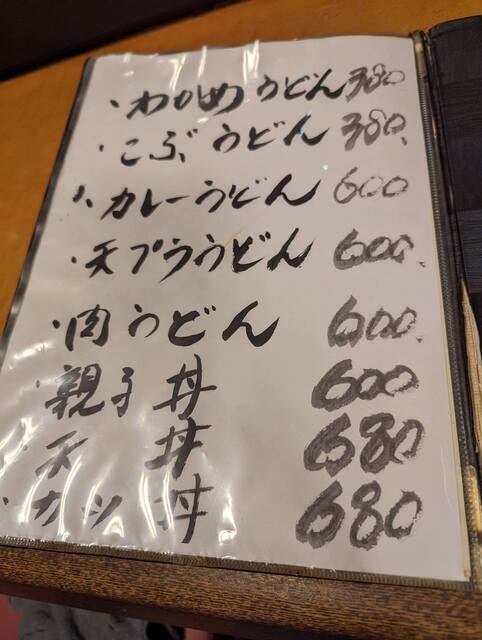 ・わかめうどん 380
・こぶうどん 380.
・カレーうどん 600
・天プラうどん 600.
・肉うどん 600.
・親子丼 600
・天丼 680
・カツ丼 680